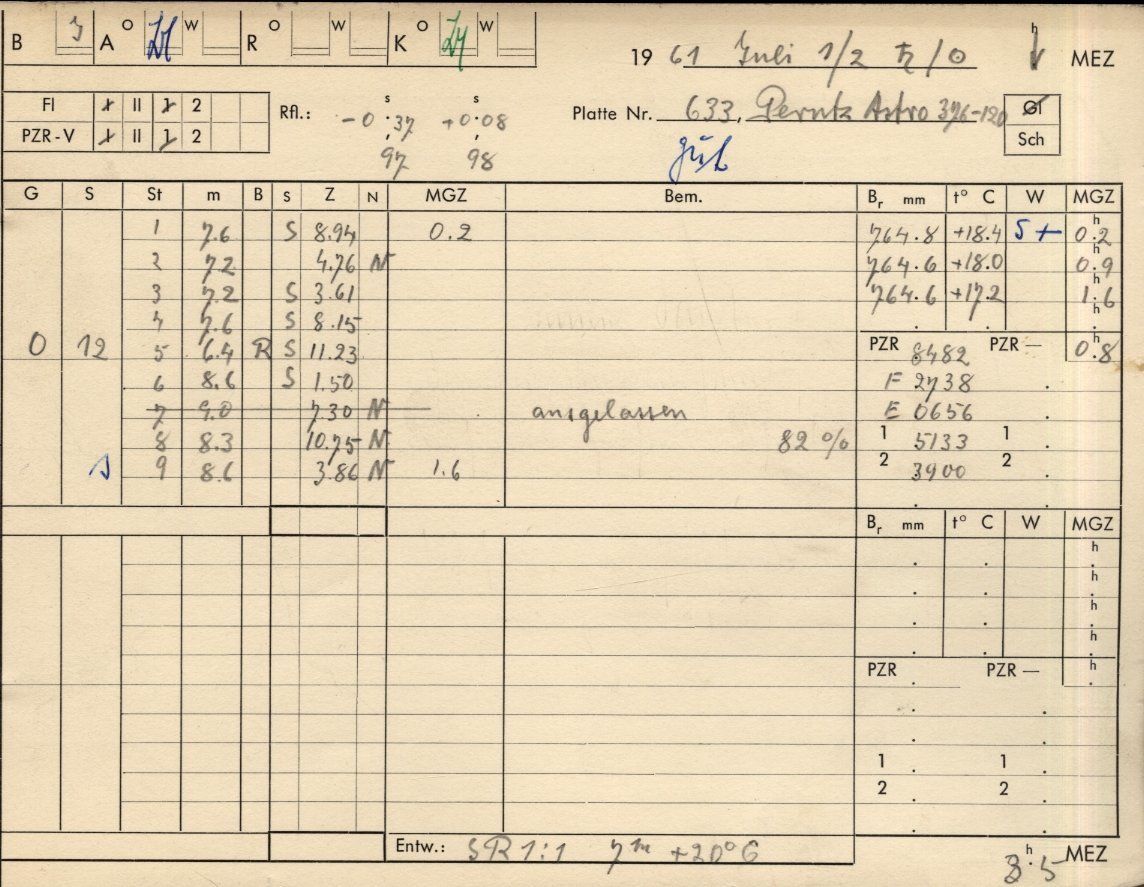 B A O W R O W K O W
19 61 Juli 1/2 ♄/☉ h MEZ
FI II 1 2
PZR-V II 1 2
Rfl.: -0.37 s +0.08 s
97 98
Platte Nr. 633, Perutz Astro 376-120
gut
Øl
Sch
G S St m B s Z N MGZ Bem. Br mm t° C W MGZ
1 7.6 S 8.94 0.2 764.8 +18.4 5 + 0.2 h
2 7.2 4.76 N 764.6 +18.0 0.9 h
3 7.2 S 3.61 764.6 +17.2 1.6 h
4 7.6 S 8.15 h
0 12 5 6.4 R S 11.23 PZR 8482 PZR — 0.8 h
6 8.6 S 1.50 F 2738
7 9.0 7.30 N ausgelassen E 0656
8 8.3 10.75 N 82 % 1 5133 1
9 8.6 3.86 N 1.6 2 3900 2
Br mm t° C W MGZ
h
h
h
h
PZR PZR — h
1 1
2 2
Entw.: SR 1:1 7m +20°C
3.5 h MEZ